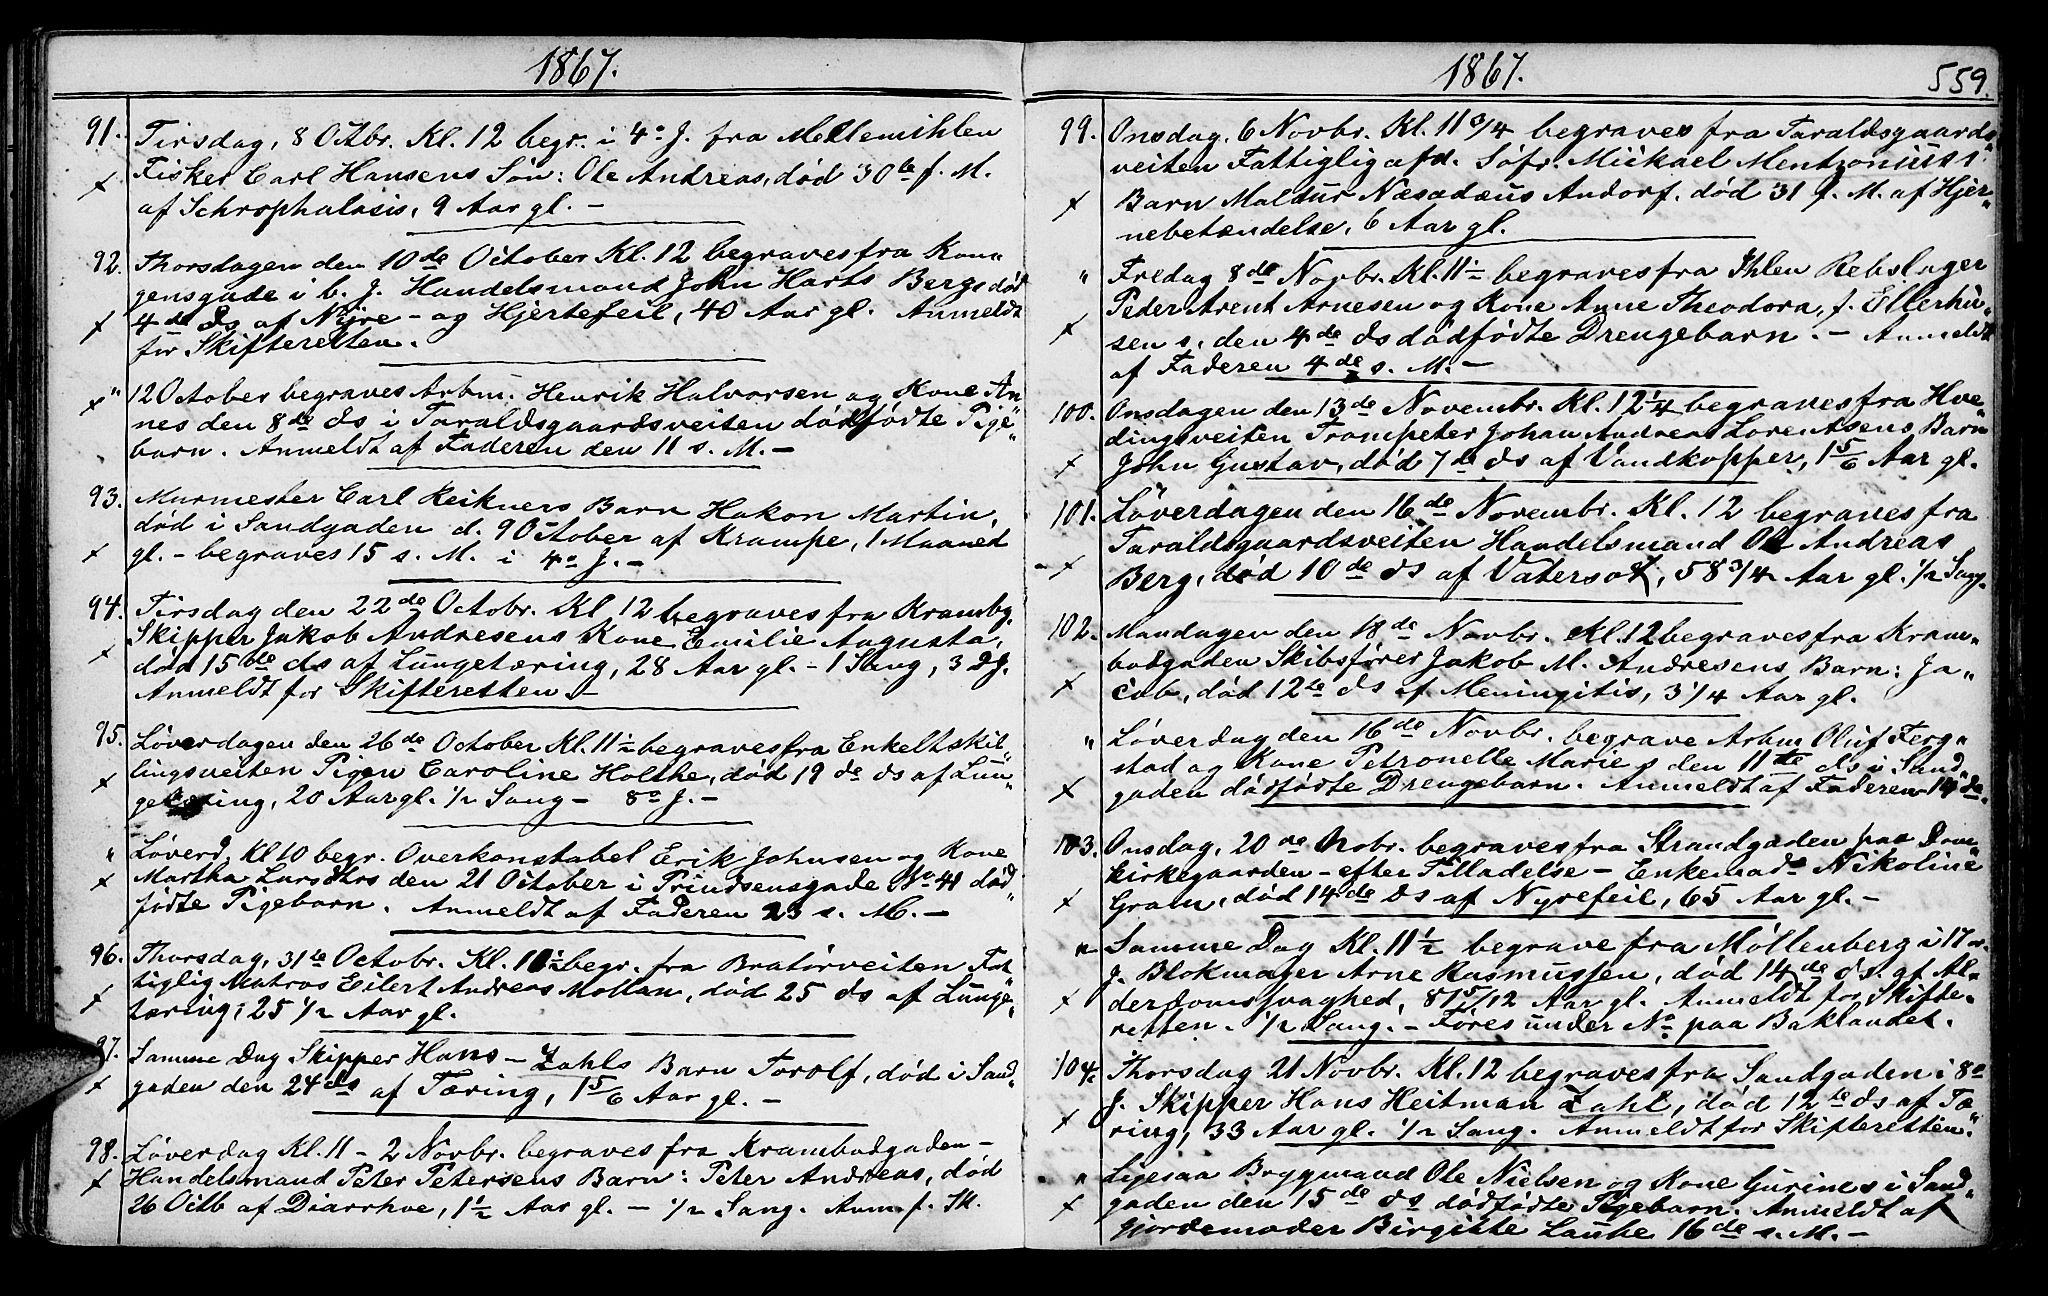 1867.
91. Tirsdag, 8 Octbr. Kl. 12 begr. i 4º J. fra Mellemihlen
Fisker Carl Hansens Søn: Ole Andreas, død 30te f. M.
af Schrophalosis, 9 Aar gl. –
92. Thorsdagen den 10de October Kl. 12 begraves fra Kon„
gensgade i b. J. Handelsmand John Harts Bergs død
4de ds af Nyre – og Hjertefeil, 40 Aar gl. Anmeldt
for Skifteretten.
„ 12 October begraves Arbm. Henrik Halvorsen og Kone An„
nes den 8de ds i Taraldsgaardsveiten dødfødte Pige„
barn. Anmeldt af Faderen den 11 s. M. –
93. Murmester Carl Keikners Barn Hakon Martin,
død i Sandgaden d. 9 October af Krampe, 1 Maaned
gl. – begraves 15 s. M. i 4º J. –
94. Tirsdag den 22de Octobr. Kl. 12 begraves fra Krambg.
Skipper Jakob Andresens Kone Emilie Augusta,
død 15de ds af Lungetæring, 28 Aar gl. – 1 Sang, 3 dg.
Anmeldt for Skifteretten –
95. Løverdagen den 26de October Kl. 11½ begraves fra Enkeltskil„
lingsveiten Pigen Caroline Holthe, død 19de ds af Lun„
getæring, 20 Aar gl. ½ Sang – 8º J. –
„ Løverd, Kl 10 begr. Overkonstabel Erik Johnsen og Kone
Martha Larsdtrs den 21 October i Prindsensgade No 41 død„
fødte Pigebarn. Anmeldt af Faderen 23 s. M. –
96. Thorsdag, 31te Octobr. Kl. 10½ begr. fra Bratørveiten Fat„
tiglig Matros Eilert Andreas Mollan, død 25 ds af Lunge„
tæring, 25 ½ Aar gl.
97. Samme Dag Skipper Hans – Zahls Barn Torolf, død i Sand„
gaden den 24 ds af Tæring, 1 5/6 Aar gl. –
98. Løverdag Kl. 11 – 2 Novbr. begraves fra Krambodgaden –
Handelsmand Peter Petersens Barn: Peter Andreas, død
26 Octb af Diarrhoe, 1½ Aar gl. – ½ Sang. Anm. f. Sk.
1867. 559.
99. Onsdag, 6 Novbr. Kl. 11 3/4 begraves fra Taraldsgaards„
veiten Fattiglig afd. Søfr. Mickael Mentzoniuss
Barn Maldur Næsodæus Andorf. død 31 f. M. af Hjer„
nebetændelse, 6 Aar gl.
„ Fredag 8de Novbr. Kl. 11½ begraves fra Ihlen Rebslager
Peder Arent Arnesen og Kone Anne Theodora, f. Ellerhu„
sen s, den 4de ds dødfødte Drengebarn. – Anmeldt
af Faderen 4de s. M. –
100. Onsdagen den 13de Novembr. Kl. 12¼ begraves fra Hve„
dingsveiten Trompeter Johan Andreas Lorentsens Barn
John Gustav, død 7de ds af Vandkopper, 1 5/6 Aar gl.
101. Løverdagen den 16de Novembr. Kl. 12 begraves fra
Taraldsgaardsveiten Handelsmand Ole Andreas
Berg, død 10de ds af Vatersot, 58 3/4 Aar gl. ½ Sang.
102. Mandagen den 18de Novbr. Kl. 12 begraves fra Kram„
bodgaden Skibsfører Jakob M. Andresens Barn: Ja„
cob, død 12te ds af Meningitis, 3 1/4 Aar gl.
„ Løverdag den 16de Novbr. begrave Arbm Oluf Ferg„
stad og Kone Petronelle Marie s den 11te ds i Sand„
gaden dødfødte Drengebarn. Anmeldt af Faderen 14de.
103. Onsdag, 20de Nobr. begraves fra Strandgaden paa Dom„
kirkegaarden – efter Tilladelse – Enkemade Nikoline
Gram, død 14de ds af Nyrefeil, 65 Aar gl. –
„ Samme Dag Kl. 11½ begrave fra Møllenberg i 17
J. Blokmager Arne Rasmussen, død 14de ds. af Al„
derdomssvaghed, 81 5/12 Aar gl. Anmeldt for Skifte„
retten. ½ Sang. – Føres under No paa Baklandet.
104. Thorsdag 21 Novbr. Kl. 12 begraves fra Sandgaden i 8º
J. Skipper Hans Heitman Zahl, død 12te ds af Tæ„
ring, 33 Aar gl. ½ Sang. Anmeldt for Skifteretten.
„ Ligesaa Brygmand Ole Nielsen og Kone Gurines i Sand„
gaden den 15de ds dødfødte Pigebarn. Anmeldt af
Gjordemoder Birgitte Laube 16de s. M. –